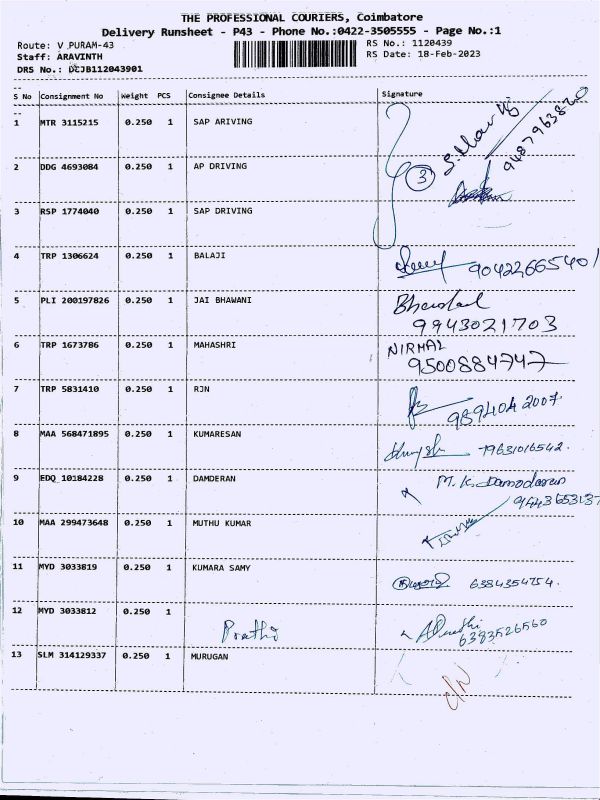 THE PROFESSIONAL COURIERS, Coimbatore
Delivery Runsheet - P43 - Phone No.:0422-3505555 - Page No.:1
Route: V PURAM-43 RS No.: 1120439
Staff: ARAVINTH RS Date: 18-Feb-2023
DRS No.: DCJB112043901
S No Consignment No Weight PCS Consignee Details Signature
1 MTR 3115215 0.250 1 SAP ARIVING
9487963820
2 DDG 4693084 0.250 1 AP DRIVING
3
3 RSP 1774040 0.250 1 SAP DRIVING
4 TRP 1306624 0.250 1 BALAJI
90422665401
5 PLI 200197826 0.250 1 JAI BHAWANI
9943021703
6 TRP 1673786 0.250 1 MAHASHRI NIRMAL
9500884747
7 TRP 5831410 0.250 1 RJN
9894042007.
8 MAA 568471895 0.250 1 KUMARESAN
79631016542.
9 EDQ 10184228 0.250 1 DAMDERAN M.K. Damodaran
9443653137
10 MAA 299473648 0.250 1 MUTHU KUMAR
11 MYD 3033819 0.250 1 KUMARA SAMY
6384354754.
12 MYD 3033812 0.250 1
Prathi
6383526560
13 SLM 314129337 0.250 1 MURUGAN